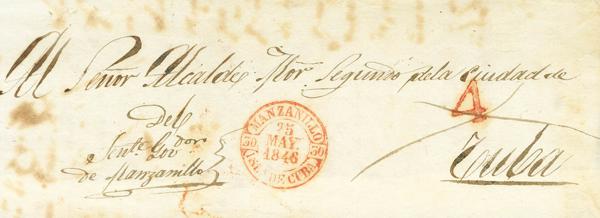 Al Señor Alcalde Mor. Segundo de la Ciudad de
Cuba
Del
Tente. Govdor
de Manzanillo
MANZANILLO
25
MAY.
1846
50 50
ISLA DE CUBA
4